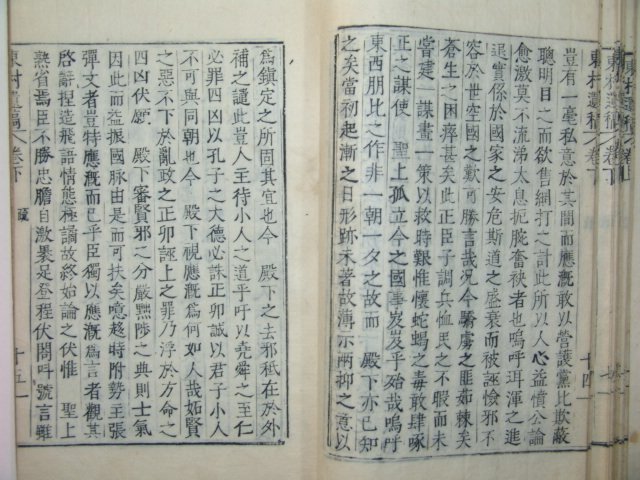 東村遺稿 卷上
東村遺稿 卷下
東村遺稿 卷下 十四
豈有一毫私意於其間而應漑敢以營護黨比欺蔽
聰明目之而欲售網打之計此所以人心益憤公論
愈激莫不流涕太息扼腕奮袂者也嗚呼珥渾之進
退實係於國家之安危斯道之盛衰而被誣憸邪不
容於世空國之歎可勝言哉況今驕虜之匪茹棘矣
蒼生之困瘁甚矣此正臣子調兵恤民之不暇而未
嘗建一謀畫一策以救時艱惟懷蛇蝎之毒敢肆啄
正之謀使 聖上孤立今之國事岌岌乎殆哉嗚呼
東西朋比之作非一朝一夕之故而 殿下亦已知
之矣當初起漸之日形跡未著故薄示兩抑之意以
爲鎭定之所固其宜也今 殿下之去邪秪在於外
補之譴此豈人主待小人之道乎吁以堯舜之至仁
必罪四凶以孔子之大德必誅正卯誠以君子小人
不可與同朝也今 殿下視應漑爲何如人哉如賢
之惡不下於亂政之正卯誣上之罪乃浮於方命之
四凶伏願 殿下審賢邪之分嚴黜陟之典則士氣
因此而益振國脉由是而可扶矣噫趍時附勢主張
彈文者豈特應漑而已乎臣獨以應漑爲言者觀其
啓辭捏造飛語情態極譎故終始論之伏惟 聖上
熟省焉臣不勝忠膽自激裹足登程伏閤呌號言雖
東村遺稿 卷下 疏 十五